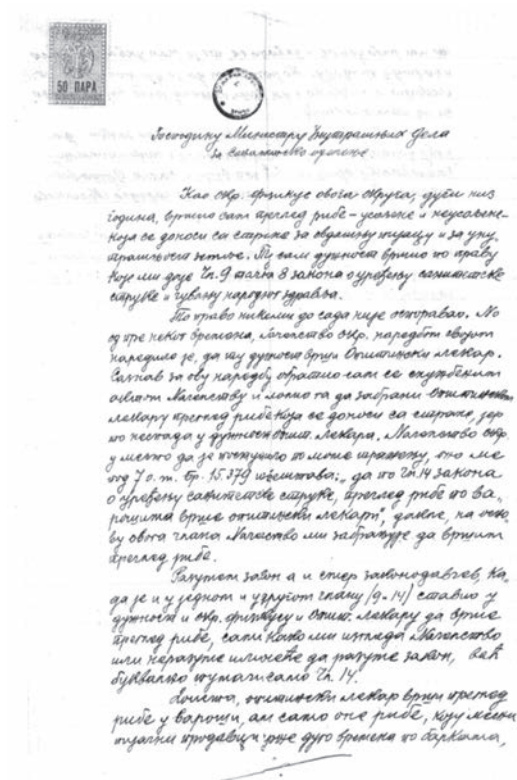 50 ПАРА
Господину Министру Унутрашњих Дела
за Санитетско одељење
Као окр. физикус овога округа, дужи низ
година, вршио сам преглед рибе – усољене и неусољене –
која се доноси са стране за овдашњу пијацу и за уну
трашњост земље. Ту сам дужност вршио по праву
које ми даје Чл. 9 тачка 8 закона о уређењу санитетске
струке и чувању народног здравља.
То право нико ми до сада није оспоравао. Но
од пре неког времена, Начелство окр. наредбом својом
наредило је, да ту дужност врши Општински лекар.
Сазнав за ову наредбу обратио сам се службеним
актом Начелству и молио га да забрани општинском
лекару преглед рибе која се доноси са стране, јер
то не спада у дужност општ. лекара. Начелство окр.
у место да је поступило по моме тражењу, оно ме
под 7 о. м. Бр. 15.379 извештава: „да по Чл. 14 закона
о уређењу санитетске струке, преглед рибе по ва„
рошима врше општински лекари“, дакле, на осно„
ву овога члана Начелство ми забрањује да вршим
преглед рибе.
Разумем закон а и смер законодавчев, ка„
да је и у једном и у другом члану (9 и 14) ставио у
дужност и окр. физикусу и Општ. лекару да врше
преглед рибе, само како ми изгледа Начелство
или не разуме или неће да разуме закон, већ
буквално тумачи само Чл. 14.
Доиста, општински лекар врши преглед
рибе у вароши, али само оне рибе, коју месни
пијачни продавци држе дуго времена по баркама,